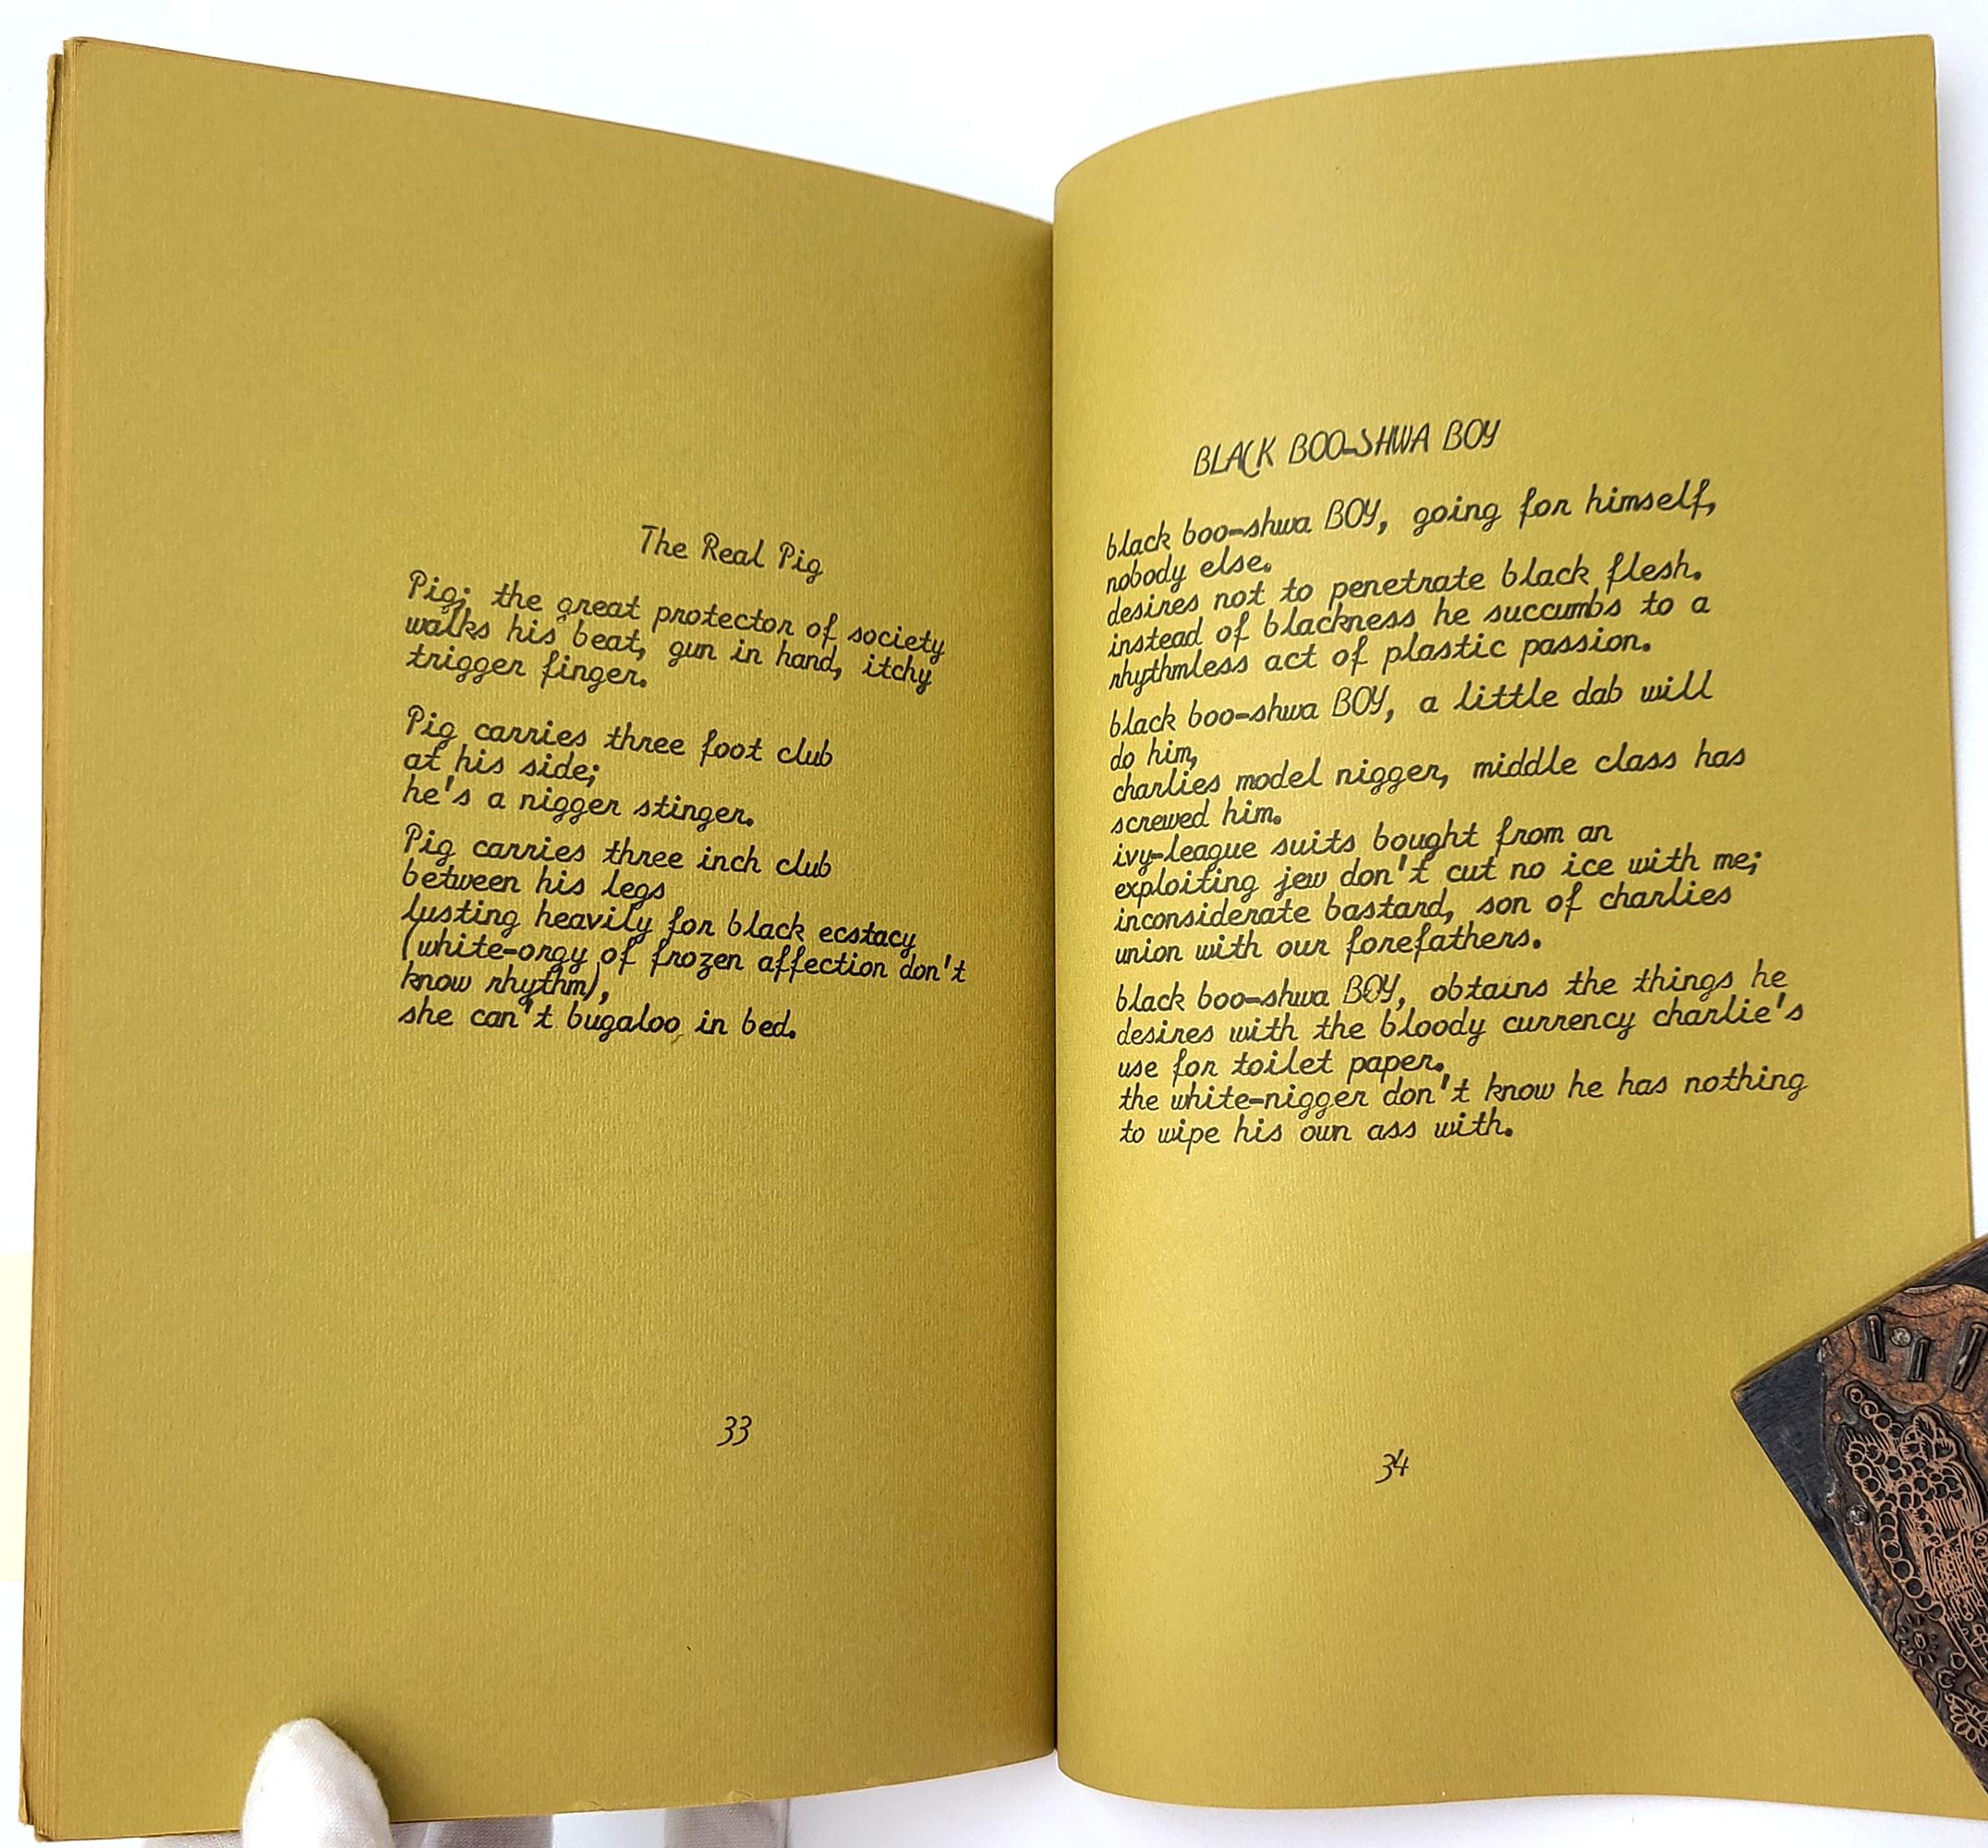 The Real Pig
Pig; the great protector of society
walks his beat, gun in hand, itchy
trigger finger.
Pig carries three foot club
at his side;
he's a nigger stinger.
Pig carries three inch club
between his legs
lusting heavily for black ecstacy
(white-orgy of frozen affection don't
know rhythm),
she can't bugaloo in bed.
33
BLACK BOO-SHWA BOY
black boo-shwa BOY, going for himself,
nobody else.
desires not to penetrate black flesh.
instead of blackness he succumbs to a
rhythmless act of plastic passion.
black boo-shwa BOY, a little dab will
do him,
charlies model nigger, middle class has
screwed him.
ivy-league suits bought from an
exploiting jew don't cut no ice with me;
inconsiderate bastard, son of charlies
union with our forefathers.
black boo-shwa BOY, obtains the things he
desires with the bloody currency charlie's
use for toilet paper.
the white-nigger don't know he has nothing
to wipe his own ass with.
34